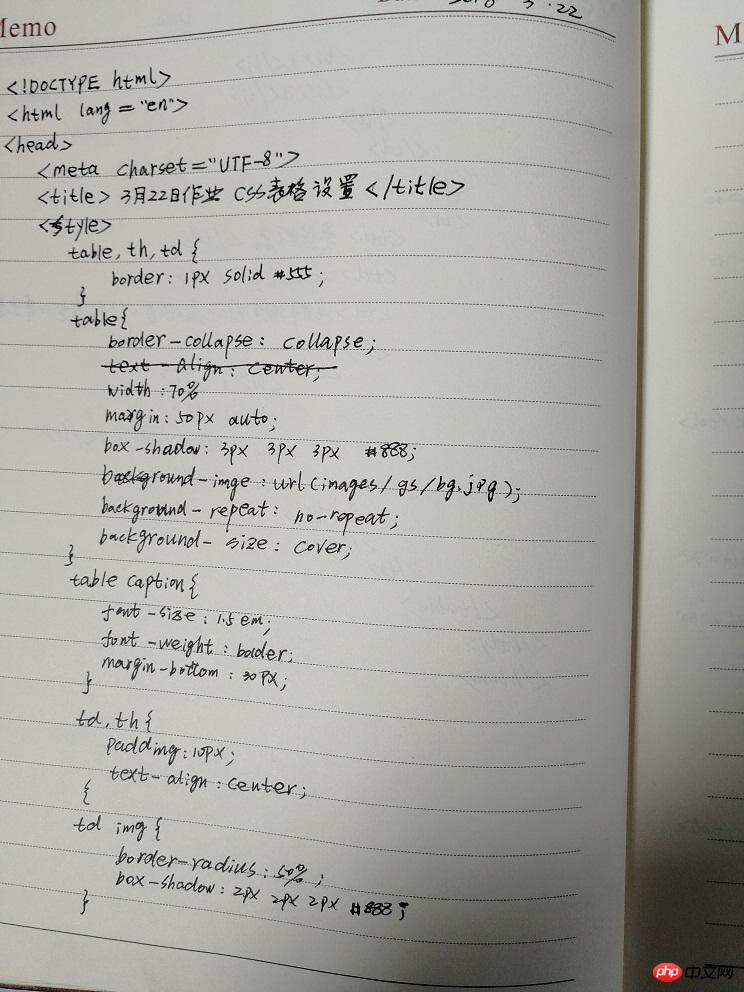 Memo
3.22
M
<!DOCTYPE html>
<html lang="en">
<head>
<meta charset="UTF-8">
<title>3月22日作业 CSS表格设置</title>
<style>
table, th, td {
border: 1px solid #555;
}
table{
border-collapse: collapse;
text-align: center;
width: 70%
margin: 50px auto;
box-shadow: 3px 3px 3px #888;
background-imge: url(images/gs/bg.jpg);
background-repeat: no-repeat;
background-size: cover;
}
table caption{
font-size: 1.5em;
font-weight: boder;
margin-bottom: 30px;
}
td, th{
padding: 10px;
text-align: center;
{
td img{
border-radius: 50%;
box-shadow: 2px 2px 2px #888;
}
php中文网